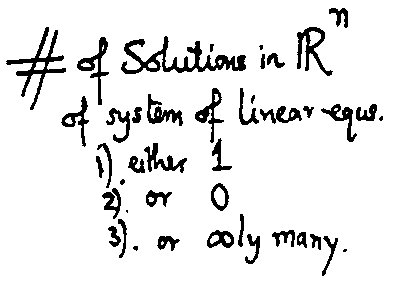 # of Solutions in ℝⁿ
of system of linear equs.
1). either 1
2). or 0
3). or ∞ly many.